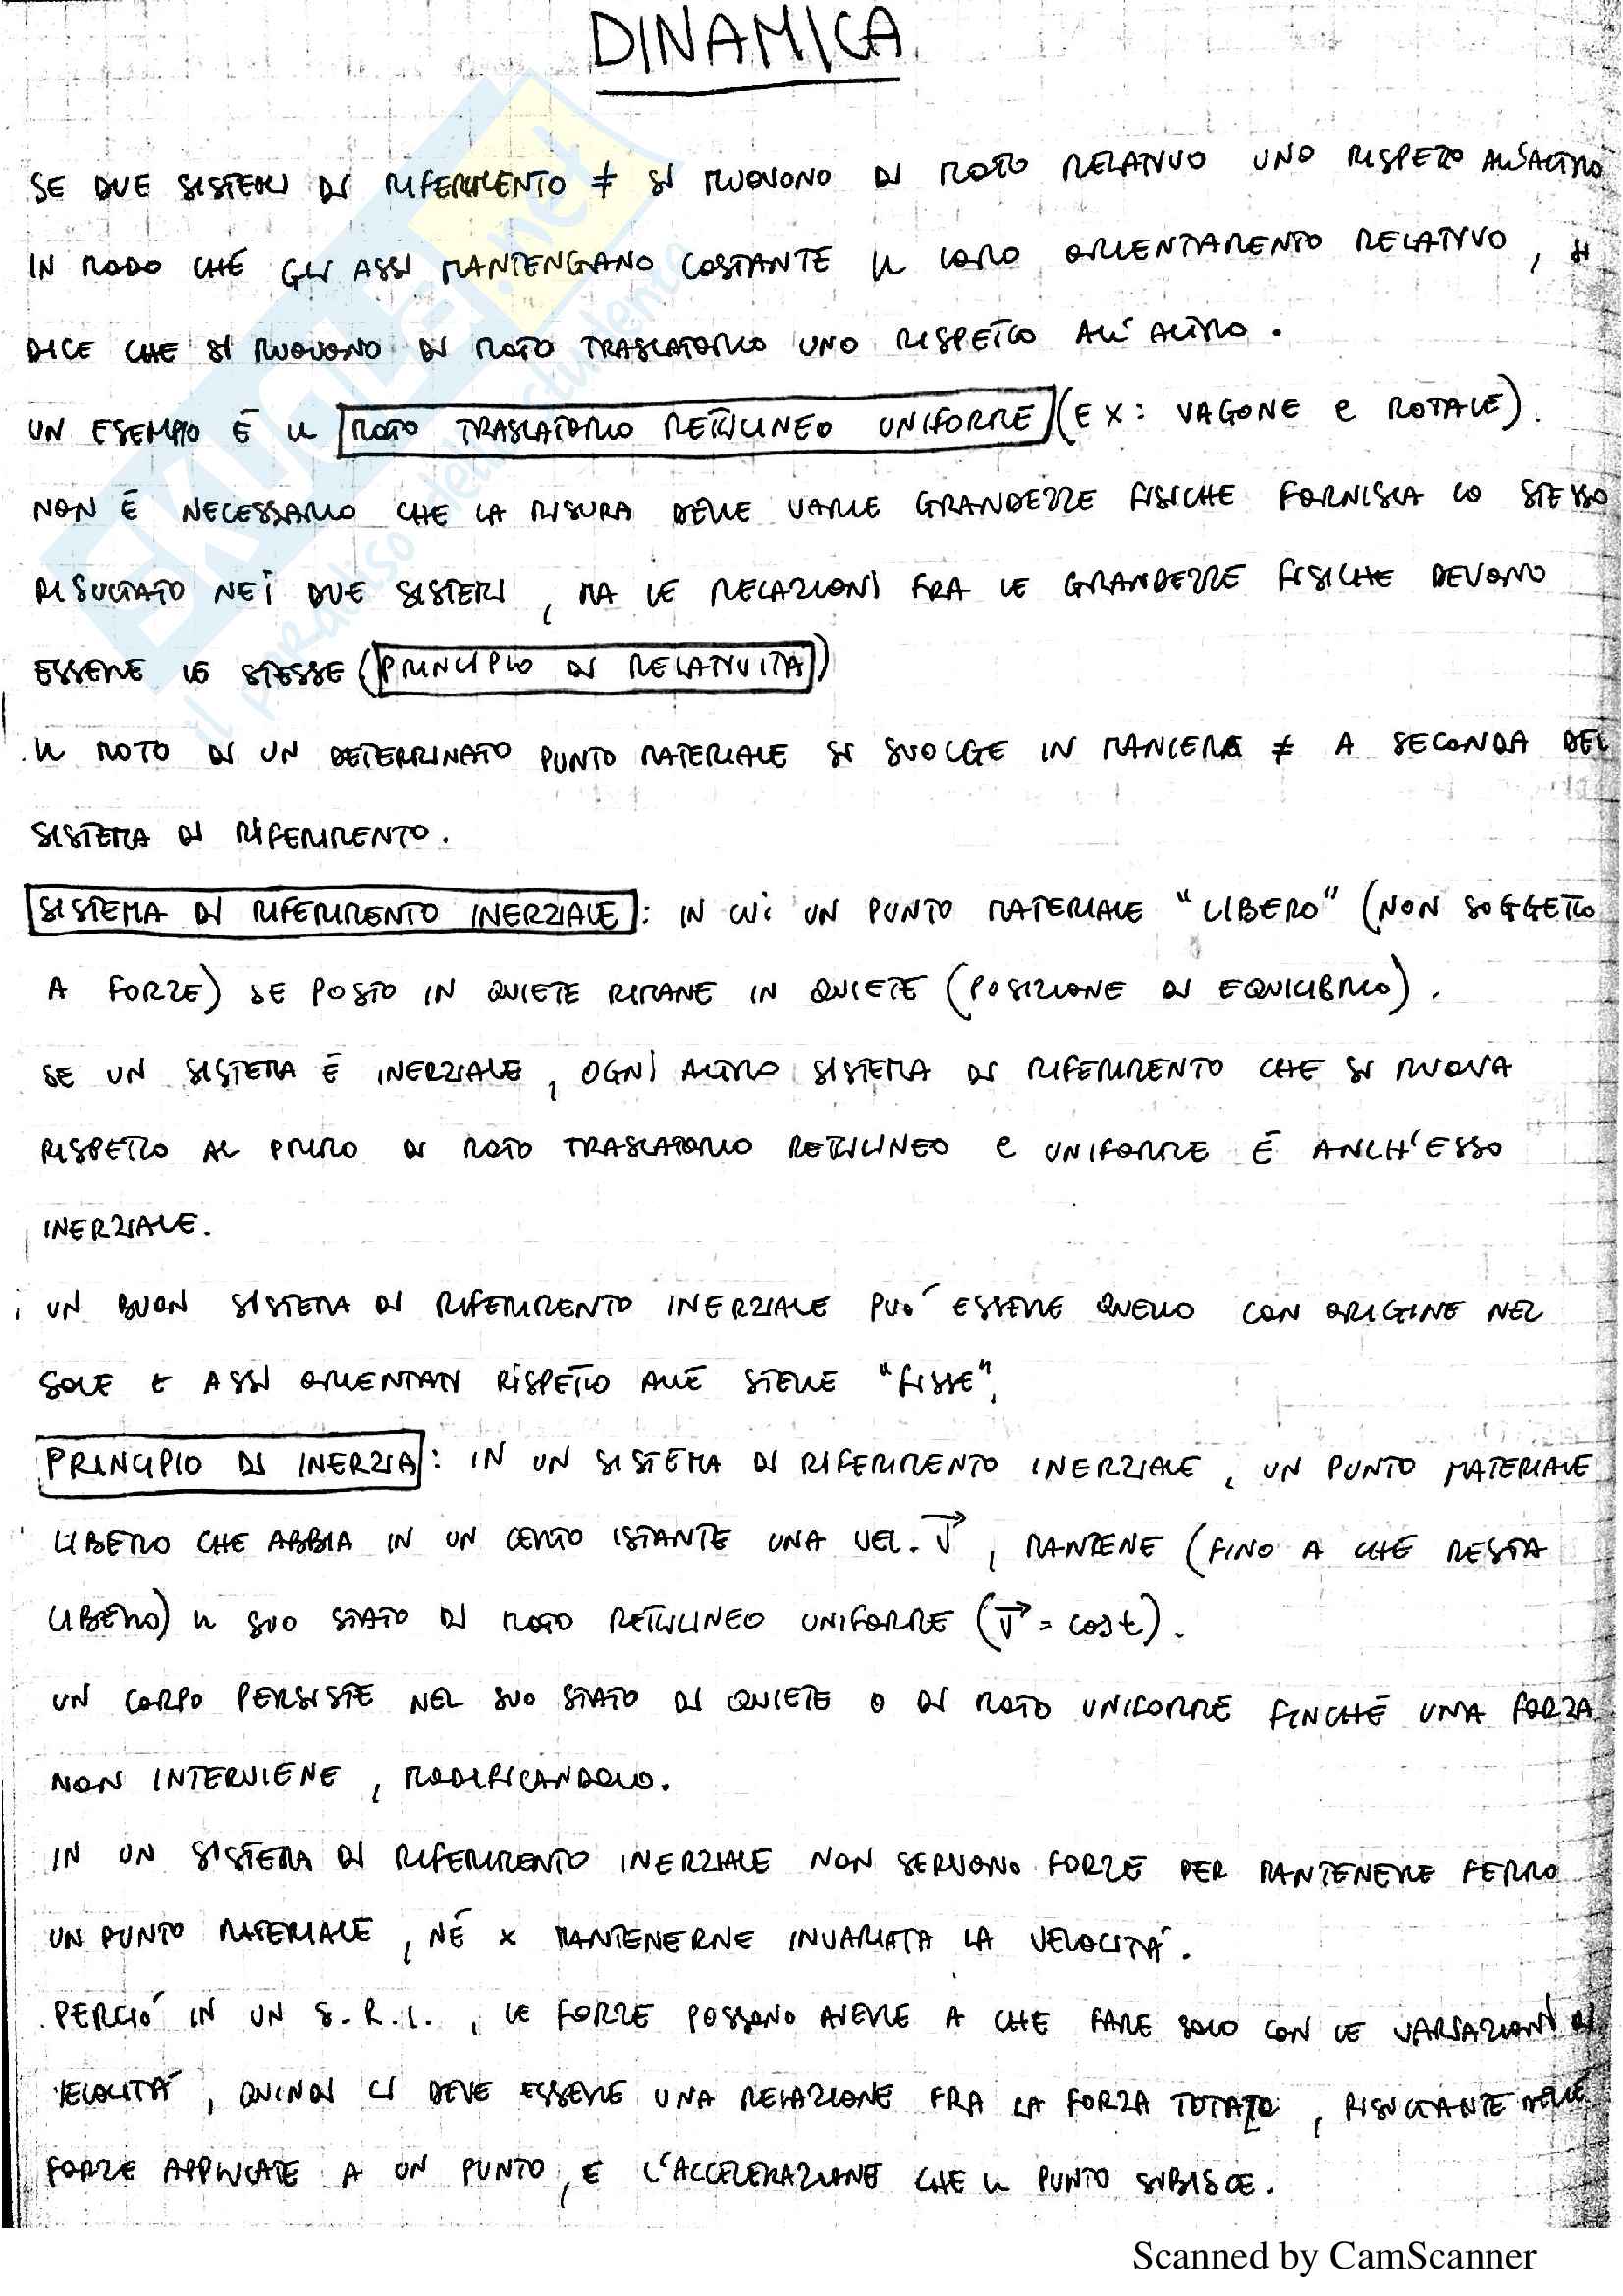 DINAMICA
SE DUE SISTEMI DI RIFERIMENTO ≠ SI MUOVONO DI MOTO RELATIVO UNO RISPETTO ALL'ALTRO
IN MODO CHE GLI ASSI MANTENGANO COSTANTE IL LORO ORIENTAMENTO RELATIVO, SI
DICE CHE SI MUOVONO DI MOTO TRASLATORIO UNO RISPETTO ALL'ALTRO.
UN ESEMPIO È IL MOTO TRASLATORIO RETTILINEO UNIFORME (EX: VAGONE e ROTAIE).
NON È NECESSARIO CHE LA MISURA DELLE VARIE GRANDEZZE FISICHE FORNISCA LO STESSO
RISULTATO NEI DUE SISTEMI, MA LE RELAZIONI FRA LE GRANDEZZE FISICHE DEVONO
ESSERE LE STESSE (PRINCIPIO DI RELATIVITÀ)
IL MOTO DI UN DETERMINATO PUNTO MATERIALE SI SVOLGE IN MANIERA ≠ A SECONDA DEL
SISTEMA DI RIFERIMENTO.
SISTEMA DI RIFERIMENTO INERZIALE: IN CUI UN PUNTO MATERIALE "LIBERO" (NON SOGGETTO
A FORZE) SE POSTO IN QUIETE RIMANE IN QUIETE (POSIZIONE DI EQUILIBRIO).
SE UN SISTEMA È INERZIALE, OGNI ALTRO SISTEMA DI RIFERIMENTO CHE SI MUOVA
RISPETTO AL PRIMO DI MOTO TRASLATORIO RETTILINEO e UNIFORME È ANCH'ESSO
INERZIALE.
UN BUON SISTEMA DI RIFERIMENTO INERZIALE PUÒ ESSERE QUELLO CON ORIGINE NEL
SOLE E ASSI ORIENTATI RISPETTO ALLE STELLE "FISSE".
PRINCIPIO DI INERZIA: IN UN SISTEMA DI RIFERIMENTO INERZIALE, UN PUNTO MATERIALE
LIBERO CHE ABBIA IN UN CERTO ISTANTE UNA VEL. v⃗, MANTIENE (FINO A CHE RESTA
LIBERO) IL SUO STATO DI MOTO RETTILINEO UNIFORME (v⃗ = cost).
UN CORPO PERSISTE NEL SUO STATO DI QUIETE O DI MOTO UNIFORME FINCHÉ UNA FORZA
NON INTERVIENE, MODIFICANDOLO.
IN UN SISTEMA DI RIFERIMENTO INERZIALE NON SERVONO FORZE PER MANTENERE FERMO
UN PUNTO MATERIALE, NÉ x MANTENERNE INVARIATA LA VELOCITÀ.
PERCIÒ IN UN S.R.I., LE FORZE POSSONO AVERE A CHE FARE SOLO CON LE VARIAZIONI DI
VELOCITÀ, QUINDI CI DEVE ESSERE UNA RELAZIONE FRA LA FORZA TOTALE, RISULTANTE DELLE
FORZE APPLICATE A UN PUNTO, E L'ACCELERAZIONE CHE IL PUNTO SUBISCE.
Scanned by CamScanner
SKUOLA.net
il paradiso dello studente